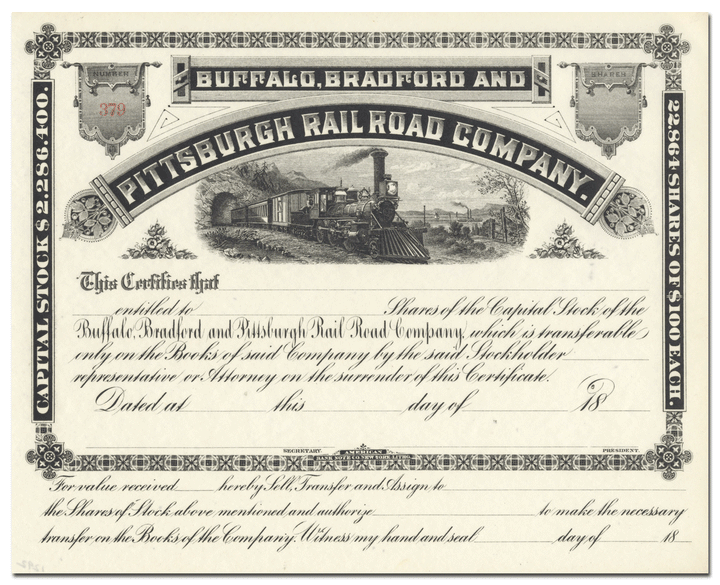 NUMBER
379
BUFFALO, BRADFORD AND
SHARES
PITTSBURGH RAIL ROAD COMPANY.
CAPITAL STOCK $2,286,400.
22,864 SHARES OF $100 EACH.
This Certifies that
entitled to Shares of the Capital Stock of the
Buffalo, Bradford and Pittsburgh Rail Road Company, which is transferable
only on the Books of said Company by the said Stockholder
representative or Attorney on the surrender of this Certificate.
Dated at this day of 18
SECRETARY. PRESIDENT.
AMERICAN
BANK NOTE CO. NEW YORK, LITHO.
For value received hereby Sell, Transfer and Assign to
the Shares of Stock above mentioned and authorize to make the necessary
transfer on the Books of the Company. Witness my hand and seal day of 18